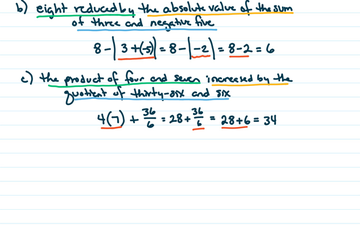 b) eight reduced by the absolute value of the sum
of three and negative five
8 - |3 + (-5)| = 8 - |-2| = 8 - 2 = 6
c) the product of four and seven increased by the
quotient of thirty-six and six
4(7) + 36/6 = 28 + 36/6 = 28 + 6 = 34